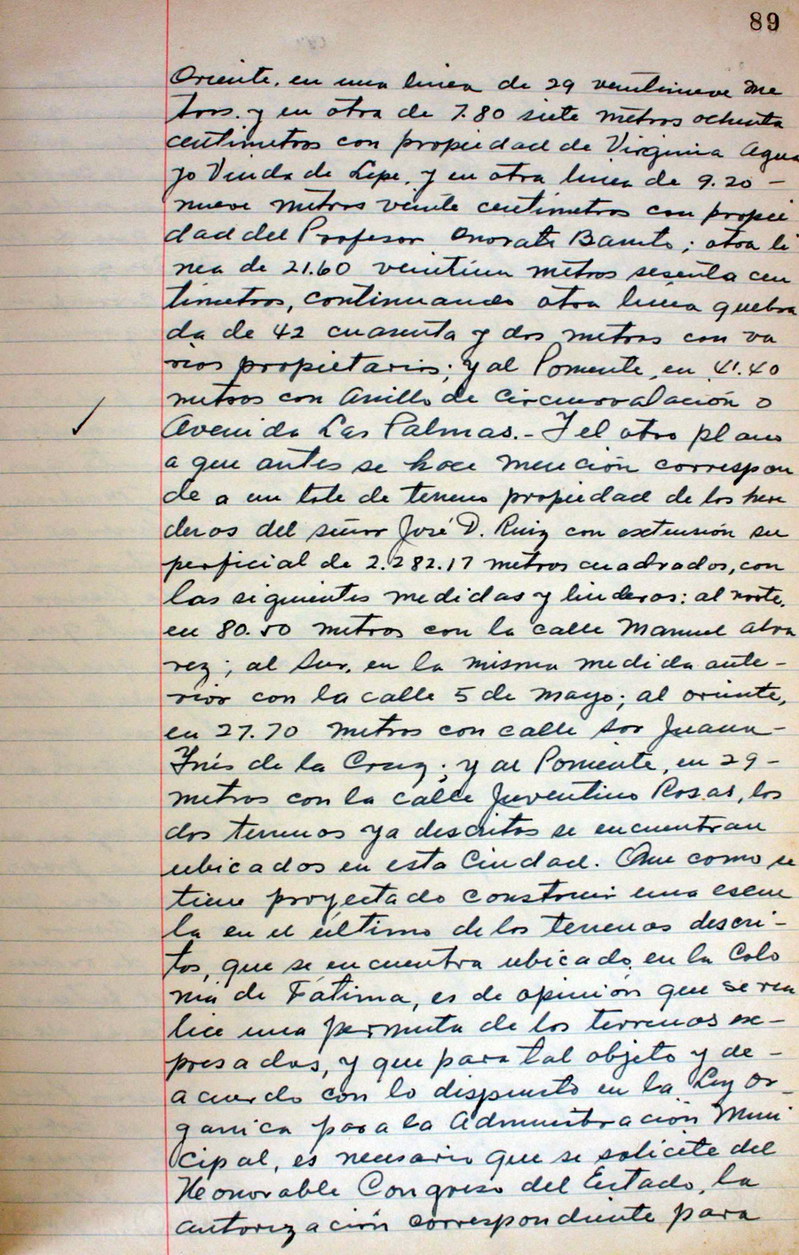 89
Oriente, en una linea de 29 veintinueve me
tros. y en otra de 7.80 siete metros ochenta
centimetros con propiedad de Virginia Agua
yo Viuda de Lepe, y en otra linea de 9.20 -
nueve metros veinte centimetros con propie
dad del Profesor Onorato Barreto; otra li
nea de 21.60 veintiun metros sesenta cen
timetros, continuando otra linea quebra
da de 42 cuarenta y dos metros con va
rios propietarios; y al Poniente, en 41.40
metros con Anillo de Circunvalación o
Avenida Las Palmas.- Y el otro plano
a que antes se hace mención correspon
de a un lote de terreno propiedad de los here
deros del señor José D. Ruiz con extensión su
perficial de 2.282.17 metros cuadrados, con
las siguientes medidas y linderos: al norte,
en 80.50 metros con la calle Manuel Alva
rez; al Sur, en la misma medida ante-
rior con la calle 5 de Mayo; al oriente,
en 27.70 metros con calle Sor Juana-
Inés de la Cruz; y al Poniente, en 29-
metros con la calle Juventino Rosas, los
dos terrenos ya descritos se encuentran
ubicados en esta Ciudad. Que como se
tiene proyectado construir una escue
la en el último de los terrenos descri-
tos, que se encuentra ubicado en la Colo
nia de Fátima, es de opinión que se rea
lice una permuta de los terrenos ex-
presados, y que para tal objeto y de-
acuerdo con lo dispuesto en la Ley Or-
ganica para la Administración Muni
cipal, es necesario que se solicite del
Honorable Congreso del Estado, la
autorización correspondiente para